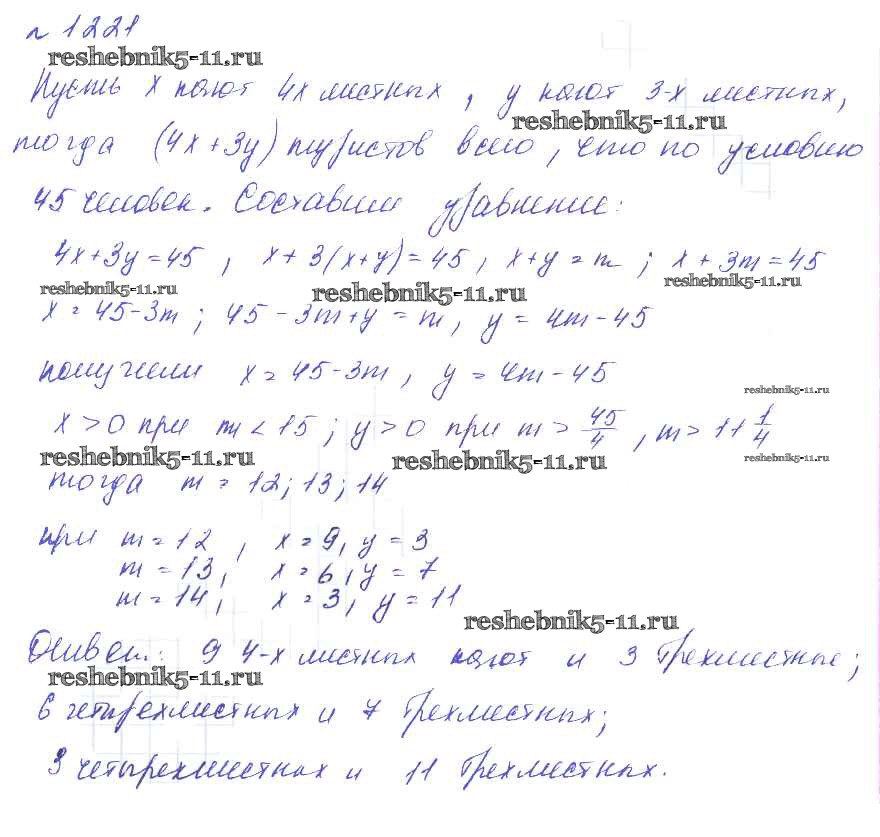 № 1221
reshebnik5-11.ru
Пусть х кают 4х местных, у кают 3-х местных,
reshebnik5-11.ru
тогда (4x+3y) туристов всего, что по условию
45 человек. Составим уравнение:
4x+3y=45, x+3(x+y)=45, x+y=m; x+3m=45
reshebnik5-11.ru reshebnik5-11.ru reshebnik5-11.ru
x=45-3m; 45-3m+y=m, y=4m-45
получили x=45-3m, y=4m-45
reshebnik5-11.ru
x>0 при m<15; y>0 при m>45/4, m>11 1/4
reshebnik5-11.ru reshebnik5-11.ru reshebnik5-11.ru
тогда m=12; 13; 14
при m=12, x=9, y=3
m=13, x=6, y=7
m=14, x=3, y=11
reshebnik5-11.ru
Ответ: 9 4-х местных кают и 3 трехместные;
reshebnik5-11.ru
6 четырехместных и 7 трехместных;
3 четырехместных и 11 трехместных.